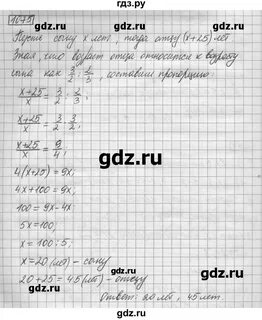 гдз.ру
1075
Пусть сыну x лет, тогда отцу (x+25) лет
Зная, что возраст отца относится к возрасту
сына как 3/2 : 2/3, составим пропорцию:
(x+25)/x = 3/2 : 2/3;
(x+25)/x = 3/2 · 3/2
(x+25)/x = 9/4;
4(x+25) = 9x;
4x+100 = 9x;
100 = 9x-4x;
5x = 100;
x = 100:5;
x = 20 (лет) - сыну
20+25 = 45 (лет) - отцу
Ответ: 20 лет, 45 лет
gdz.ru
gdz.ru
gdz.ru
gdz.ru
gdz.ru
gdz.ru
gdz.ru